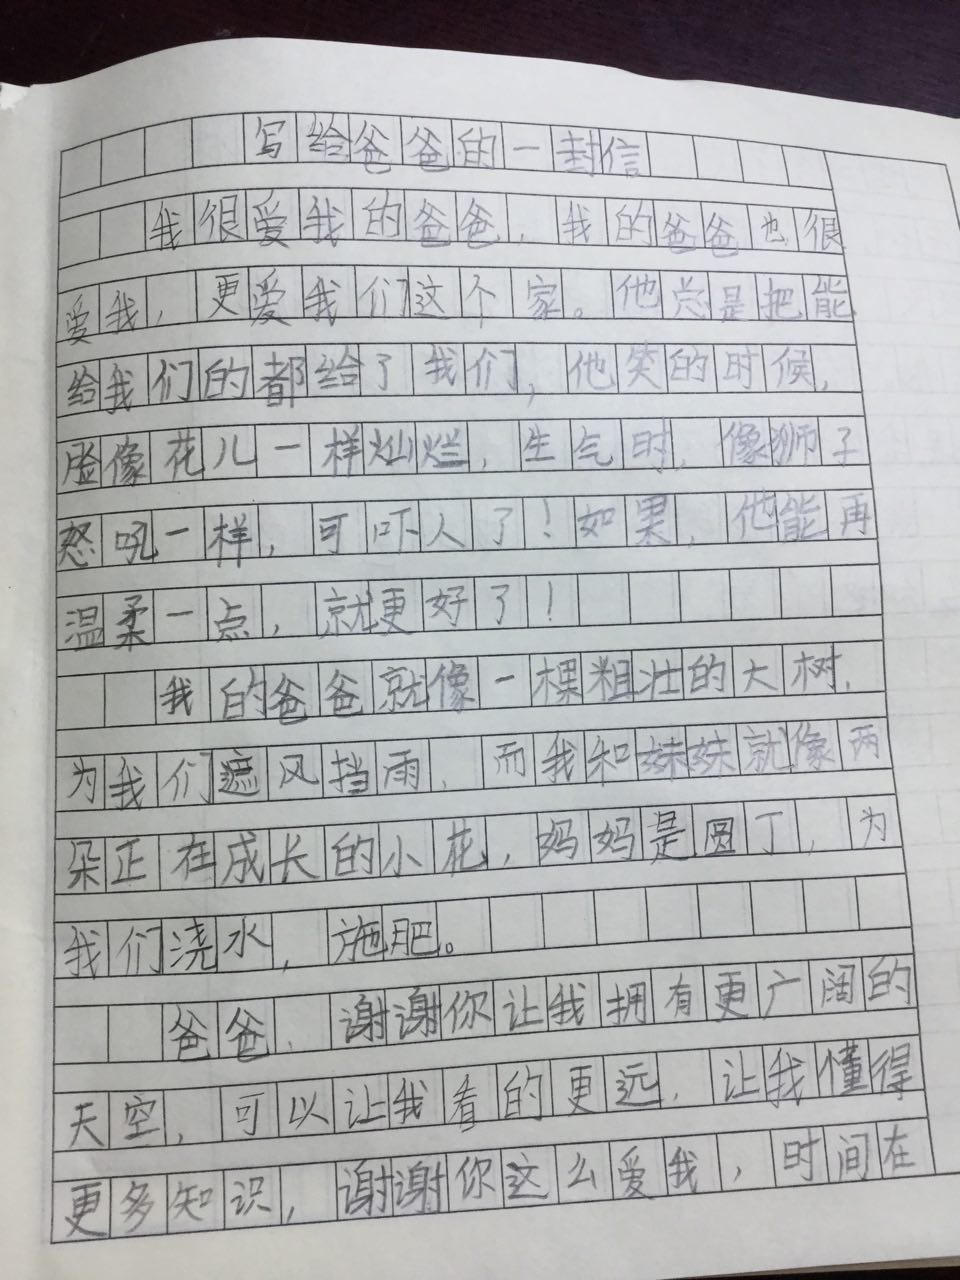 写给爸爸的一封信
我很爱我的爸爸，我的爸爸也很
爱我，更爱我们这个家。他总是把能
给我们的都给了我们，他笑的时候，
脸像花儿一样灿烂，生气时，像狮子
怒吼一样，可吓人了！如果，他能再
温柔一点，就更好了！
我的爸爸就像一棵粗壮的大树，
为我们遮风挡雨，而我和妹妹就像两
朵正在成长的小花，妈妈是圆丁，为
我们浇水，施肥。
爸爸，谢谢你让我拥有更广阔的
天空，可以让我看的更远，让我懂得
更多知识，谢谢你这么爱我，时间在